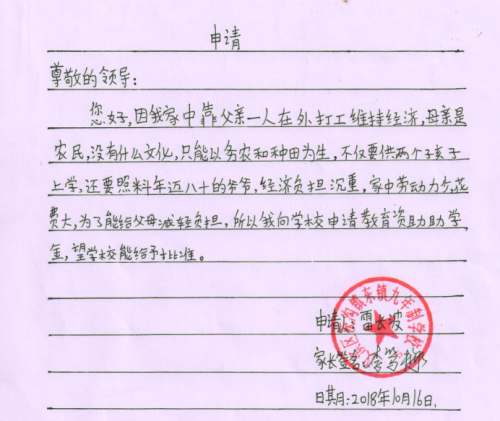 申请
尊敬的领导：
您好，因我家中靠父亲一人在外打工维持经济，母亲是
农民，没有什么文化，只能以务农和种田为生，不仅要供两个孩子
上学，还要照料年迈八十的爷爷，经济负担沉重，家中劳动力少，花
费大，为了能给父母减轻负担，所以我向学校申请教育资助助学
金，望学校能给予批准。
申请人：雷长波
家长签名：李
日期：2018年10月16日.
区 沟镇东镇九年制学校